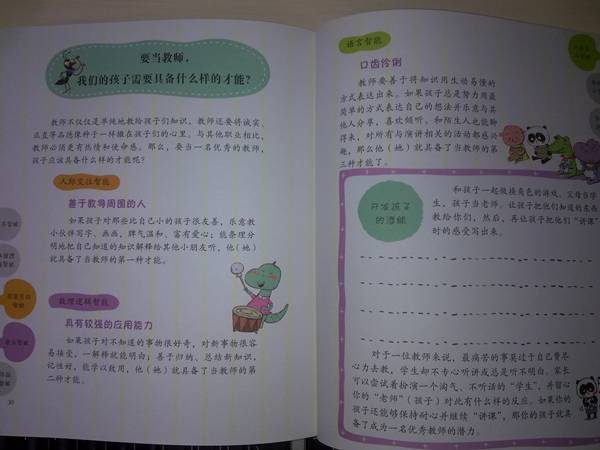 要当教师，
我们的孩子需要具备什么样的才能？
教师不仅仅是单纯地教给孩子们知识，教师还要将诚实、
正直等品德像种子一样撒在孩子们的心里。与其他职业相比，
教师必须更有热情和使命感。那么，要当一名优秀的教师，
孩子应该具备什么样的才能呢？
人际交往智能
善于教导周围的人
如果孩子对那些比自己小的孩子很友善，乐意教
小伙伴写字、画画，脾气温和、富有爱心；能条理分
明地把自己知道的知识解释给其他小朋友听，他（她）
就具备了当教师的第一种才能。
数理逻辑智能
具有较强的应用能力
如果孩子对不知道的事物很好奇，对新事物很容
易接受，一解释就能明白；善于归纳、总结新知识，
记性好，能学以致用，他（她）就具备了当教师的第
二种才能。
30
语言智能
口齿伶俐
教师要善于将知识用生动易懂的
方式表达出来。如果孩子总是努力用最
简单的方式表达自己的想法并乐意与其
他人分享，喜欢倾听、和陌生人也能聊
得来，对所有与演讲相关的活动都感兴
趣，那么他（她）就具备了当教师的第
三种才能了。
开发孩子
的潜能
和孩子一起做换角色的游戏。父母当学
生，孩子当老师。让孩子把他们知道的东西
教给你们，然后，再让孩子把他们“讲课”
时的感受写出来。
对于一位教师来说，最痛苦的事莫过于自己费尽
心力去教，学生却不专心听讲或总是听不明白。家长
可以尝试着扮演一个淘气、不听话的“学生”，并留心
你的“老师”（孩子）对此有什么样的反应。如果你的
孩子还能够保持耐心并继续“讲课”，那你的孩子就具
备了成为一名优秀教师的潜力。